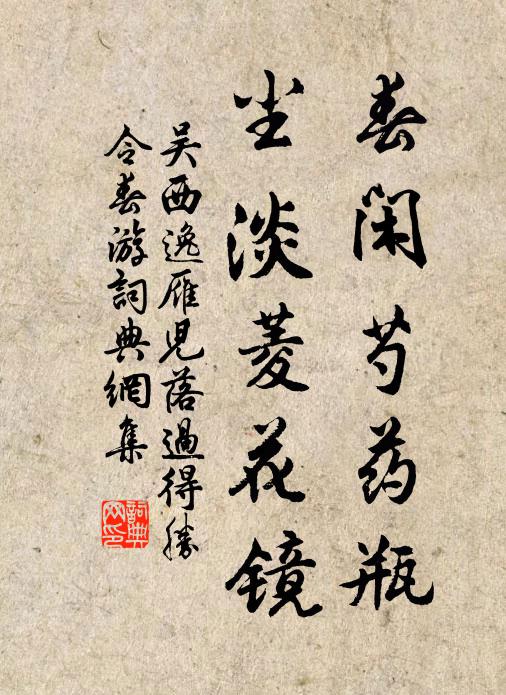 春闲芍药瓶
尘淡菱花镜
吴西逸雁儿落過得勝
令春游詞典網集
詞典網印